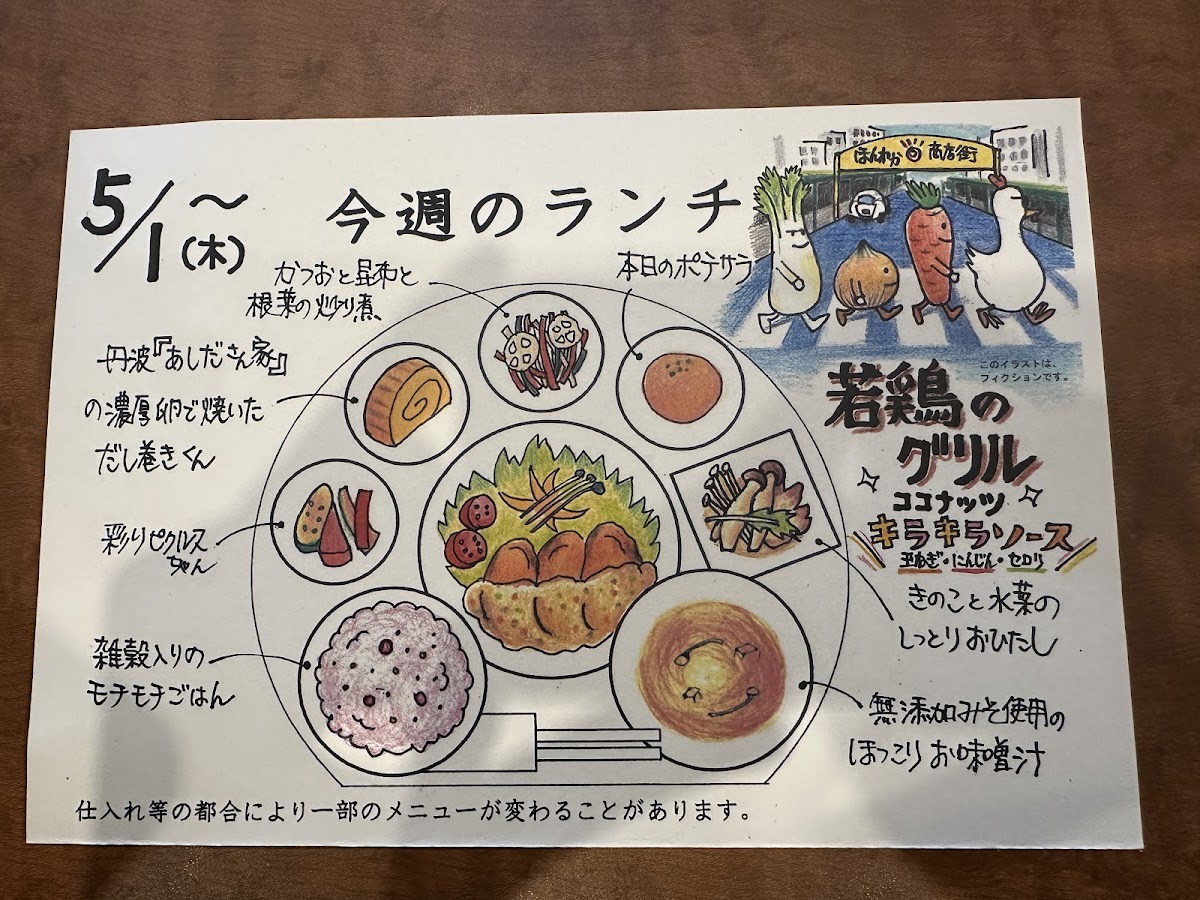 5/1〜(木)
今週のランチ
ほんわか 商店街
このイラストは、
フィクションです。
かつおと昆布と
根菜の炒り煮
本日のポテサラ
丹波『あしださん家』
の濃厚卵で焼いた
だし巻きくん
彩りピクルス
ちゃん
雑穀入りの
モチモチごはん
若鶏の
グリル
ココナッツ
キラキラソース
玉ねぎ・にんじん・セロリ
きのこと水菜の
しっとりおひたし
無添加みそ使用の
ほっこりお味噌汁
仕入れ等の都合により一部のメニューが変わることがあります。